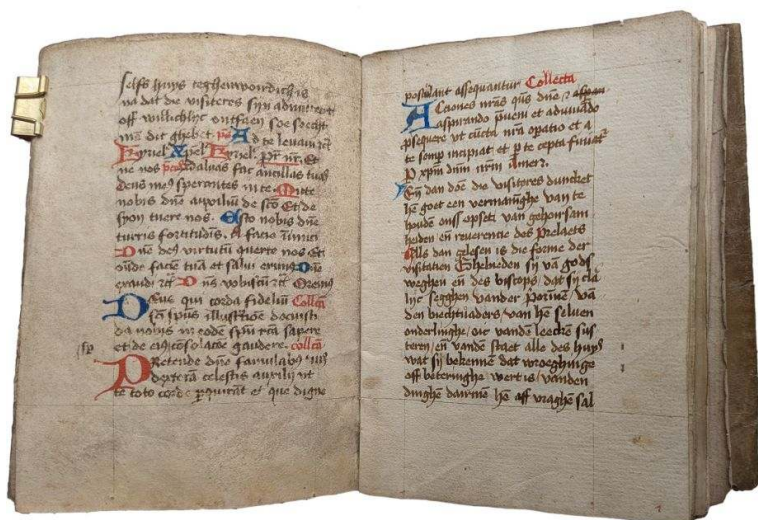 selfs huys teghenwordich is
vā dat die visiteres sijn aduintent
off willichlyc ontfaen soe secht
mē dit ghebet ps Ad te leuaui rc
Kyriel Xpel Kyriel. Pr nr. Et
ne nos pces Saluas fac ancillas tuas
deus me9 sperantes in te. Mitte
nobis dne auxiliū de sco Et de
syon tuere nos. Esto nobis dne
turris fortitudis. A facie inimici
Dne de9 virtutū querte nos Et
onde faciē tuā et salui erim9 Dne
exaudi rc Dns vobiscū rc Orem9
Deus qui corda fideliū Collca
sci spūs illustrōe docuisti
da nobis in eodē spū rcā sapere
et de ei9 cōsolacōe gaudere. collca
Pretende dne famulab9 tuis
dexterā celestis auxilij ut
te toto corde pquirāt et que digne
postulant assequantur Collecta
Acciones nras qs dne
aspirando pueni et adiuuādo
psequere vt cūcta nra opatio et a
te semp incipiat et p te cepta finiat
P xpm dnm nrm Amen.
En dan dōe die visiteres duncket
hē goet een vermaninghe van te
houdē onss opseti van gehoirsam
heiden en reuerencie des Prelaets
Als dan ghelesen is die forme der
visitacien Ghebieden sij vā gods
weghen eñ des biscops, dat sij cla
lijc segghen vander Priorinē, vā
den biechtuaders, van hē seluen
onderlinghe, oic vandē leecken sus
teren, eñ vandē staet alle des huys
wat sij bekennē dat wroeghinge
off beteringhe wert is, vanden
dinghē dairmē hē aff vraghē sal